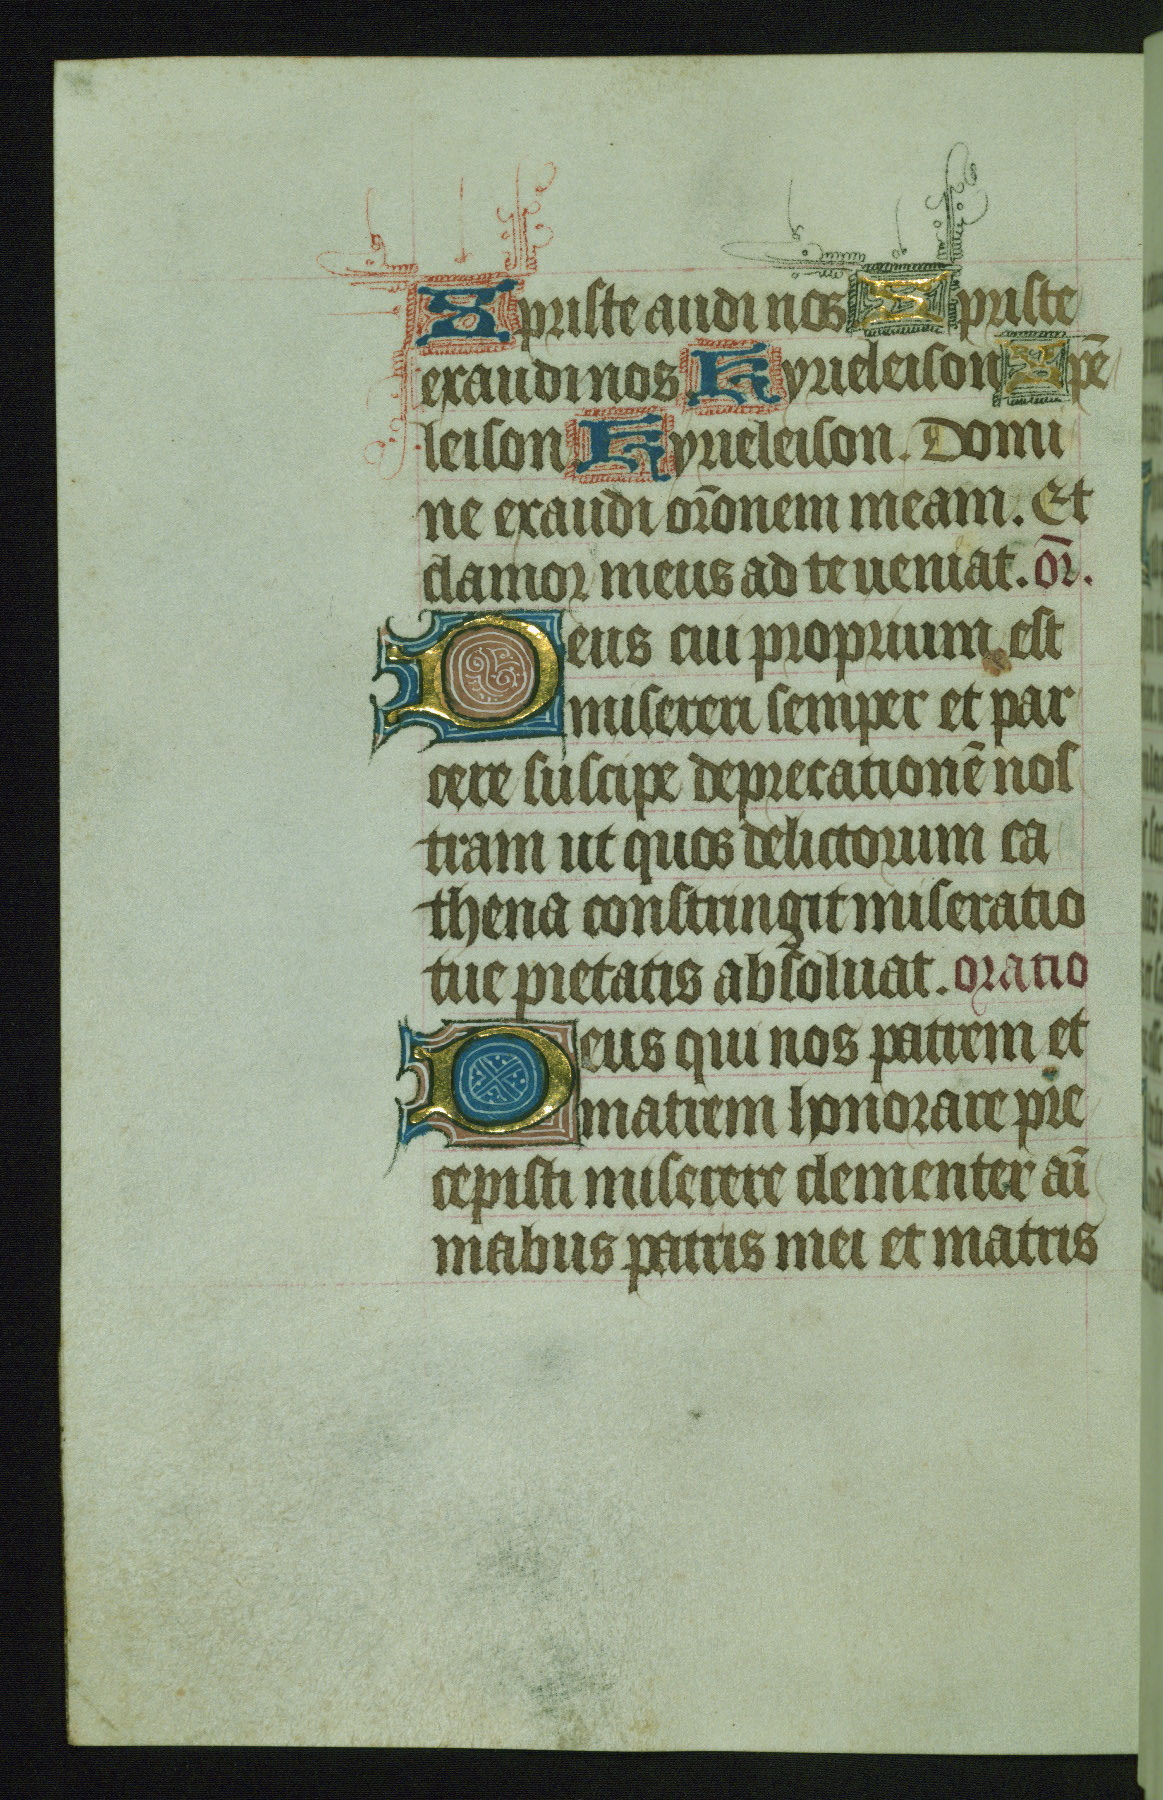 Xpriste audi nos Xpriste
exaudi nos Kyrieleison Xpē
leison Kyrieleison. Domi
ne exaudi or̄onem meam. Et
clamor meus ad te ueniat. or̄.
Deus cui proprium est
misereri semper et par
cere suscipe deprecationē nos
tram ut quos delictorum ca
thena constringit miseratio
tue pietatis absoluat. oratio
Deus qui nos patrem et
matrem honorare pre
cepisti miserere clementer aī
mabus patris mei et matris